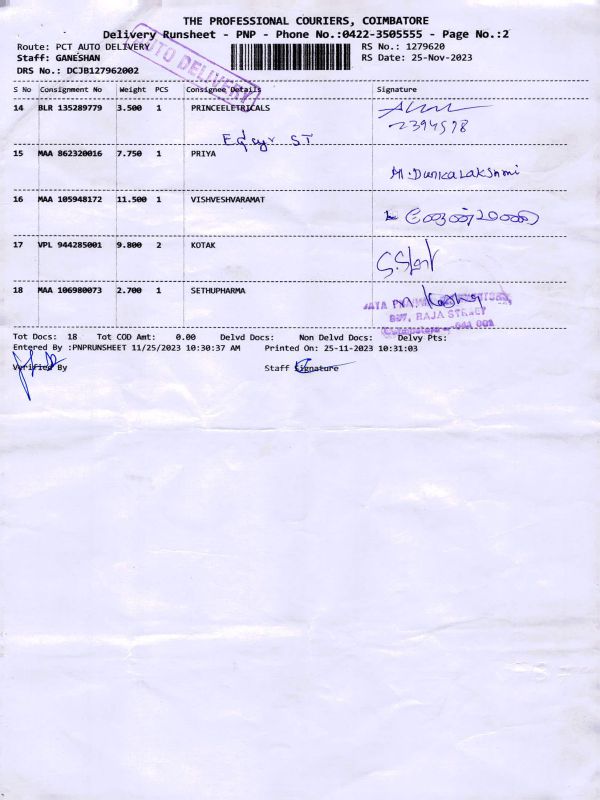 THE PROFESSIONAL COURIERS, COIMBATORE
Delivery Runsheet - PNP - Phone No.:0422-3505555 - Page No.:2
Route: PCT AUTO DELIVERY
RS No.: 1279620
Staff: GANESHAN
RS Date: 25-Nov-2023
DRS No.: DCJB127962002
AUTO DELIVERY
S No Consignment No Weight PCS Consignee Details Signature
14 BLR 135289779 3.500 1 PRINCEELETRICALS
2394598
ST
15 MAA 862320016 7.750 1 PRIYA
16 MAA 105948172 11.500 1 VISHVESHVARAMAT
17 VPL 944285001 9.800 2 KOTAK
18 MAA 106980073 2.700 1 SETHUPHARMA
RAJA STREET
Tot Docs: 18 Tot COD Amt: 0.00 Delvd Docs: Non Delvd Docs: Delvy Pts:
Entered By :PNPRUNSHEET 11/25/2023 10:30:37 AM Printed On: 25-11-2023 10:31:03
Verified By Staff Signature